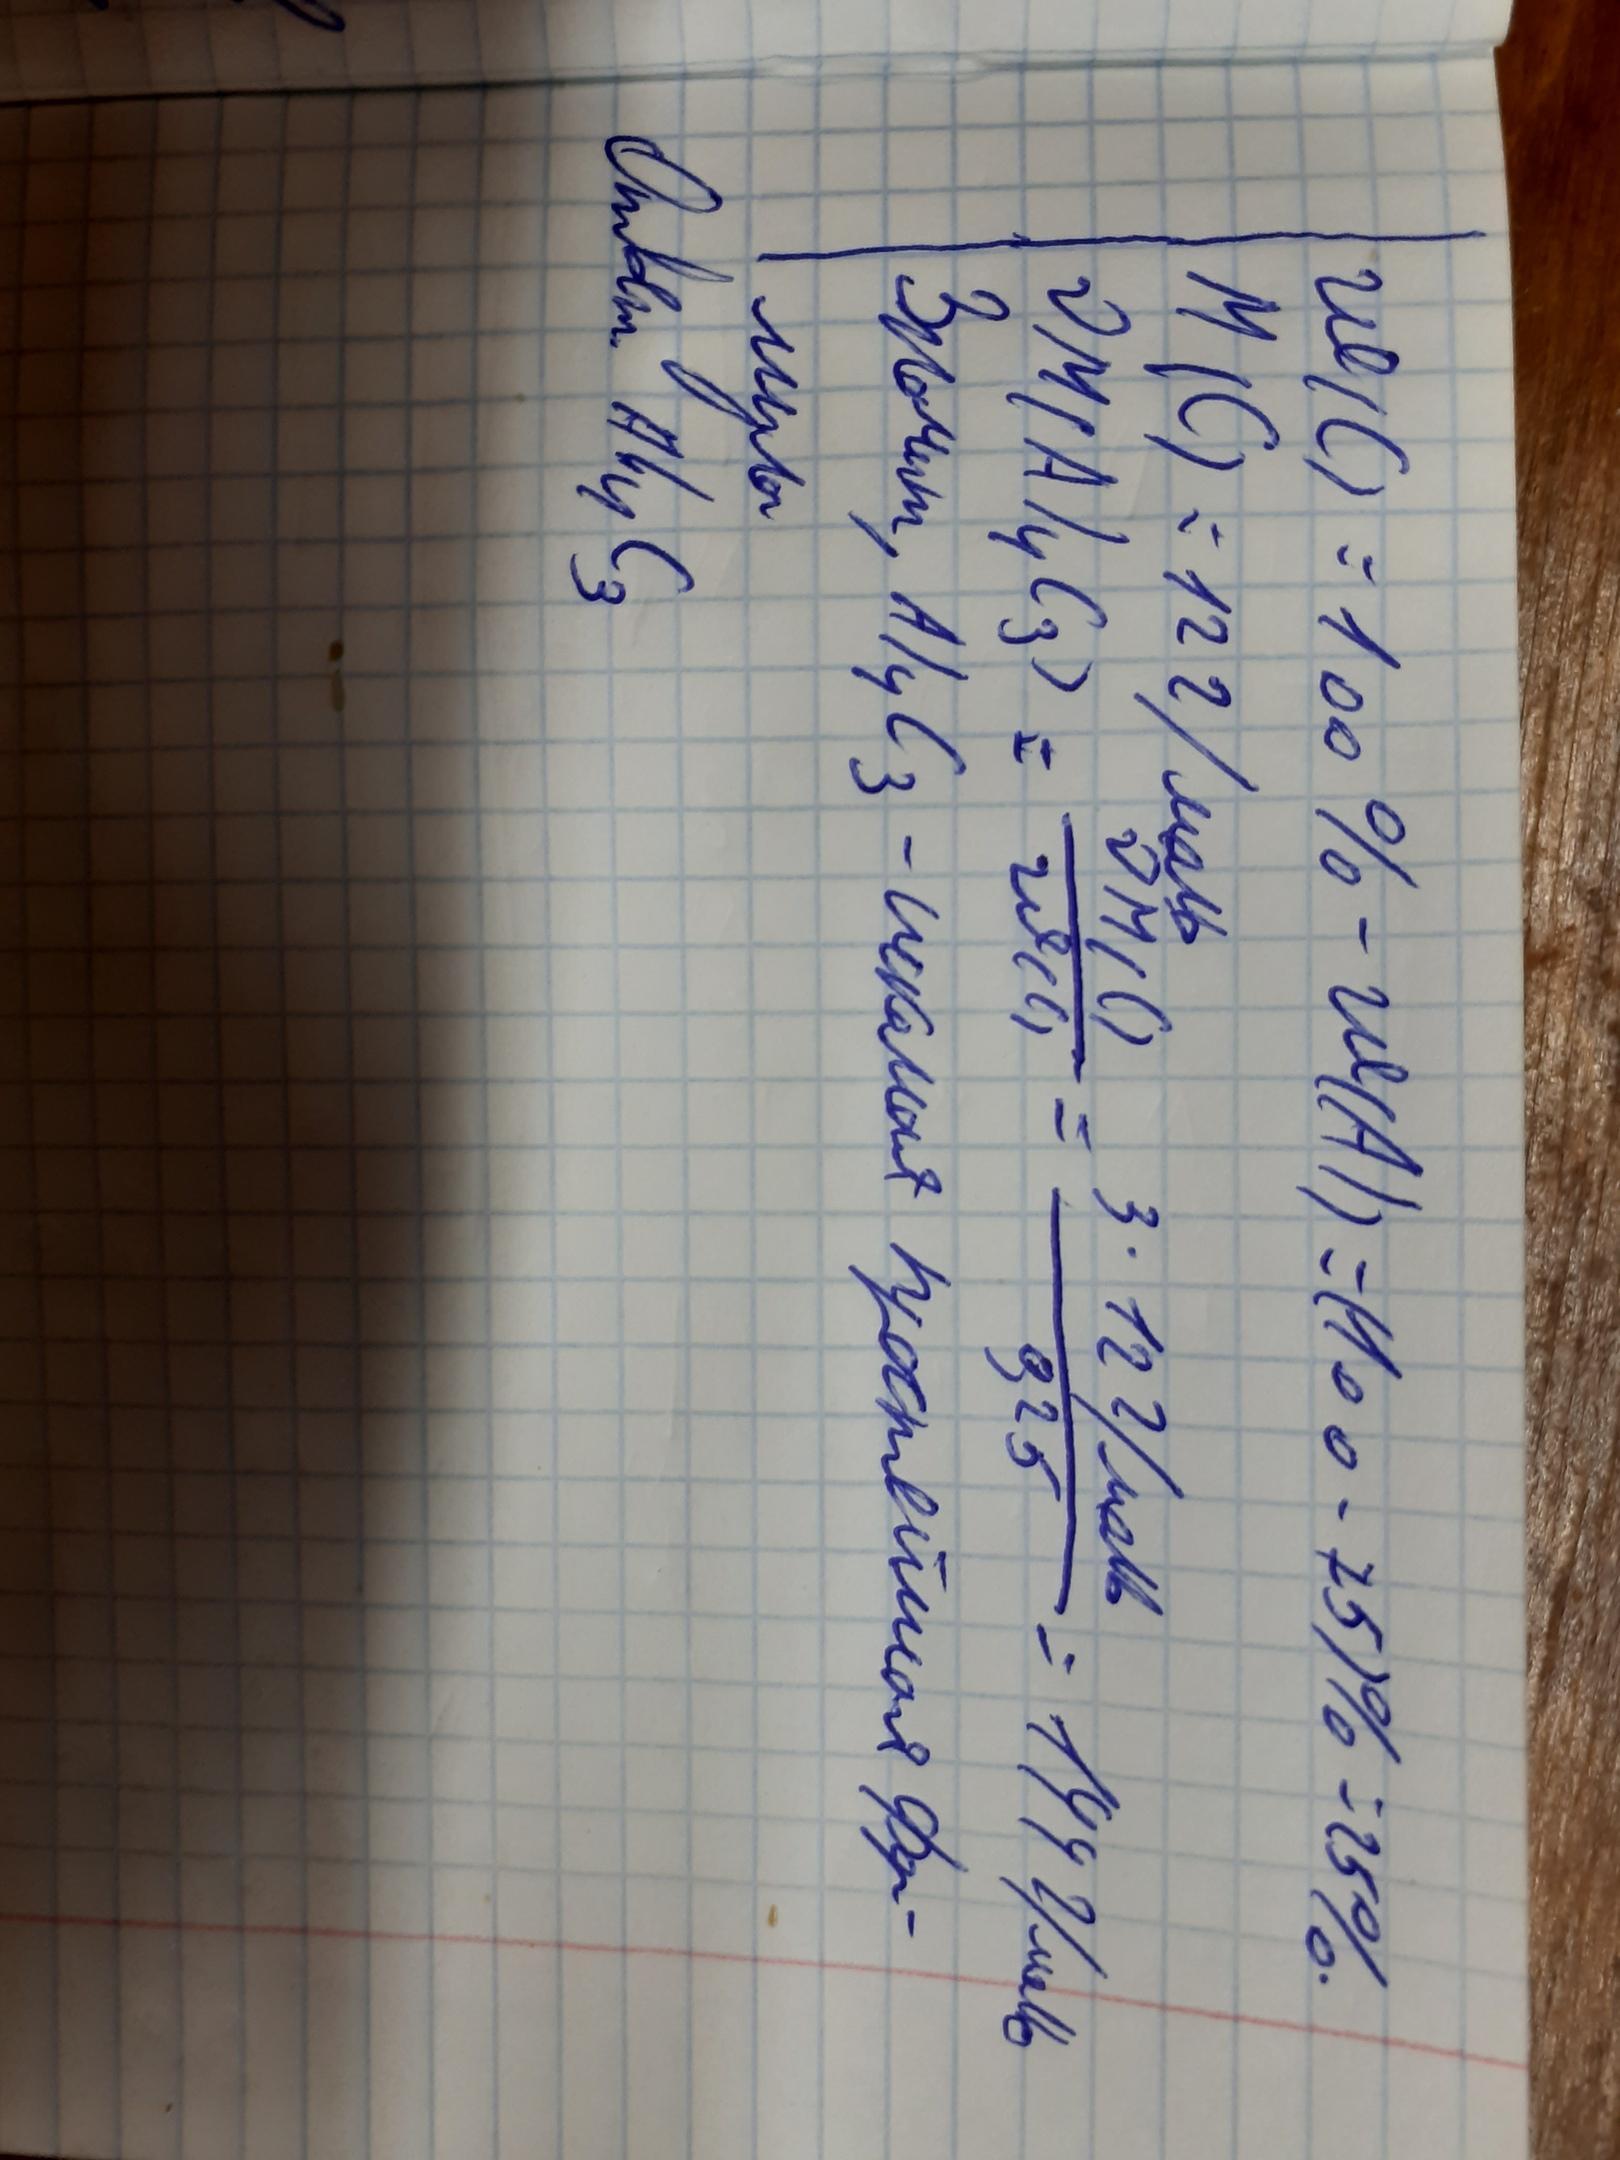 w(C) = 100 % - w(Al) = (100 - 75)% = 25%.
M(C) = 12 г/моль
νM(Al4C3) = νM(C) / w(C) = 3·12 г/моль / 0,25 = 144 г/моль
Значит, Al4C3 - искомая простейшая фор-
мула
Ответ. Al4C3